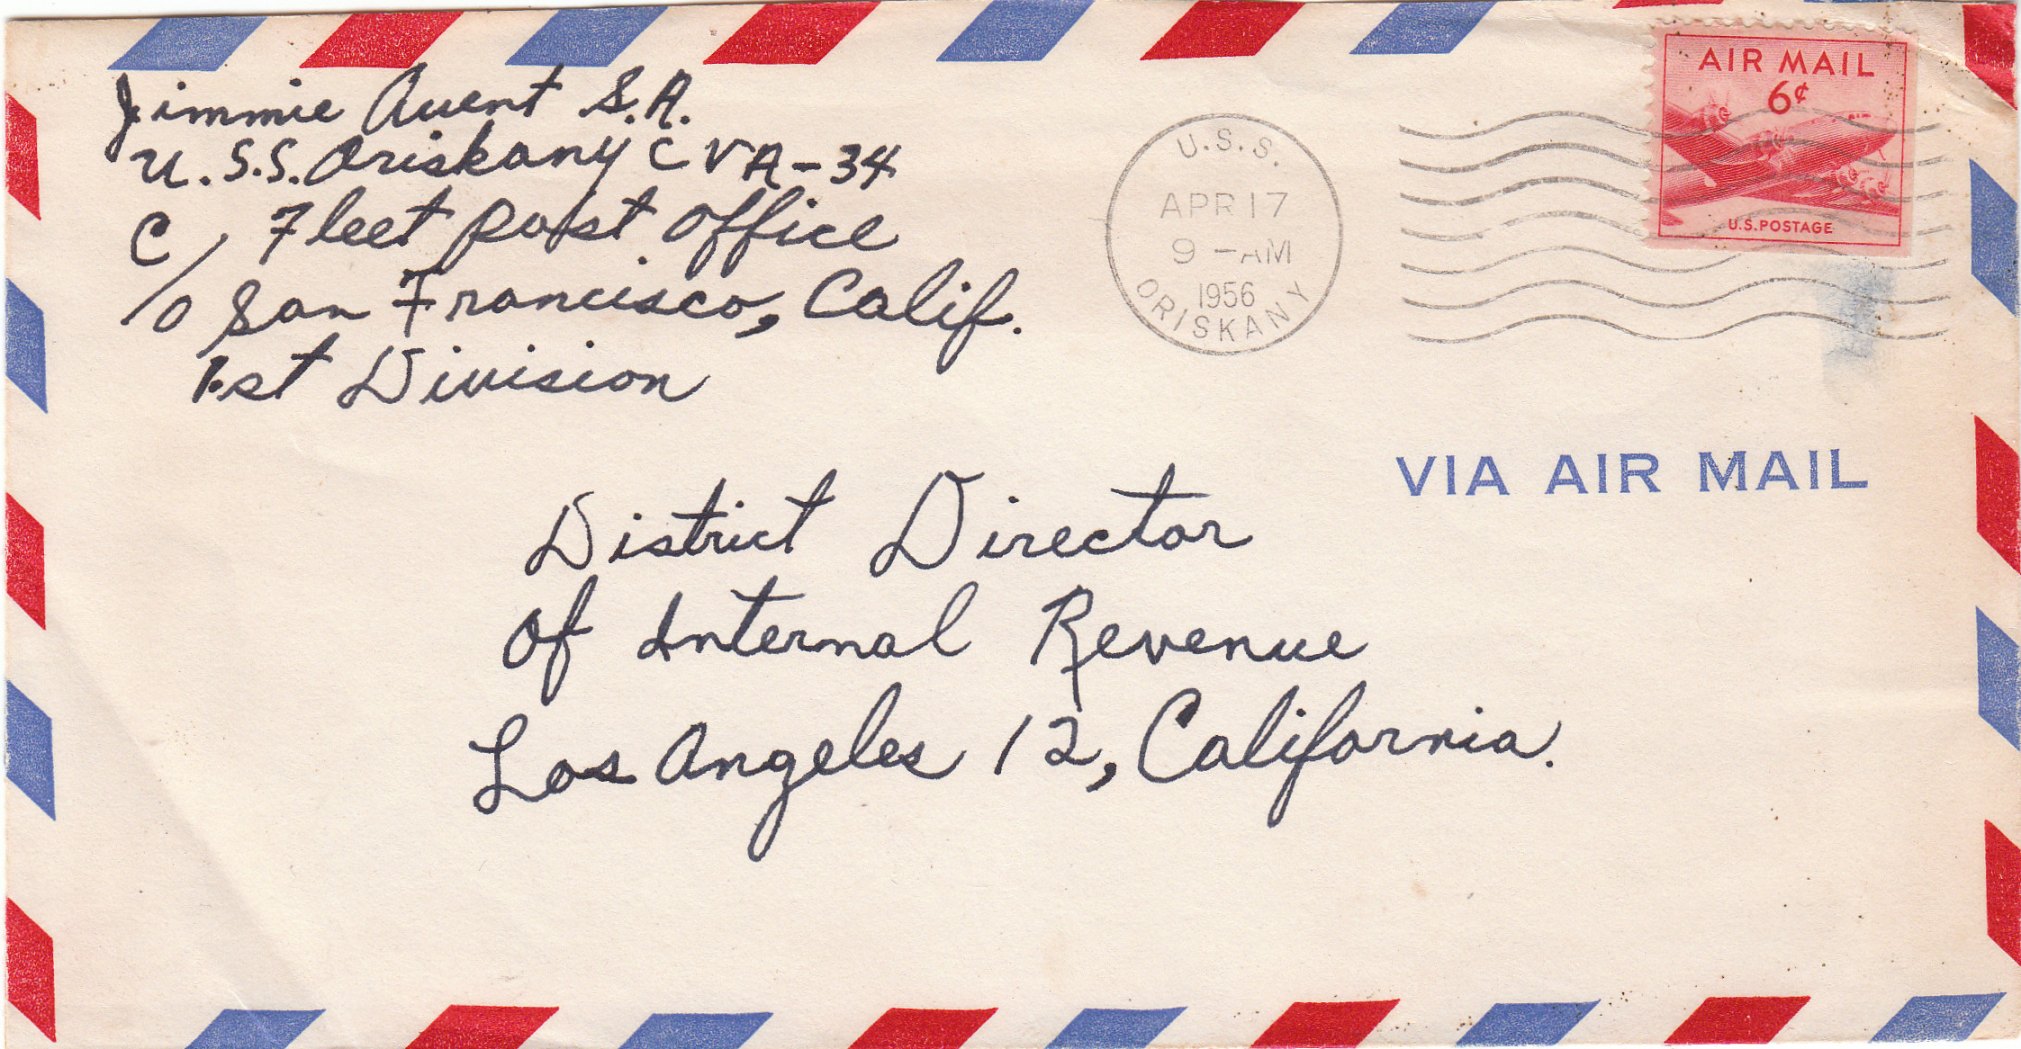 Jimmie Avent S.A.
U.S.S. Oriskany CVA-34
C/o Fleet Post Office
San Francisco, Calif.
1st Division
U.S.S.
APR 17
9 - AM
1956
ORISKANY
AIR MAIL
6¢
U.S. POSTAGE
VIA AIR MAIL
District Director
Of Internal Revenue
Los Angeles 12, California.